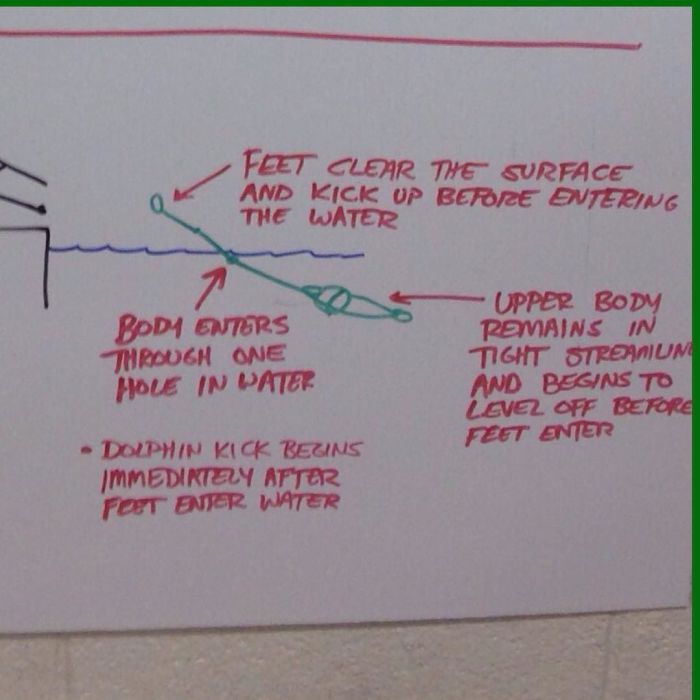 FEET CLEAR THE SURFACE
AND KICK UP BEFORE ENTERING
THE WATER
BODY ENTERS
THROUGH ONE
HOLE IN WATER
UPPER BODY
REMAINS IN
TIGHT STREAMLIN
AND BEGINS TO
LEVEL OFF BEFORE
FEET ENTER
• DOLPHIN KICK BEGINS
IMMEDIATELY AFTER
FEET ENTER WATER